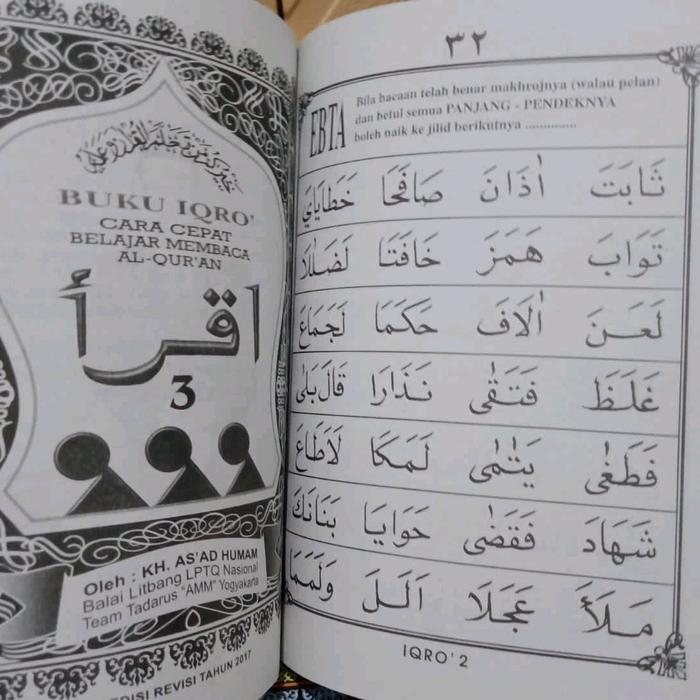 BUKU IQRO'
CARA CEPAT
BELAJAR MEMBACA
AL-QUR'AN
اقرأ
3
Oleh : KH. AS'AD HUMAM
Balai Litbang LPTQ Nasional
Team Tadarus "AMM" Yogyakarta
EDISI REVISI TAHUN 2017
٣٢
EBTA
Bila bacaan telah benar makhrojnya (walau pelan)
dan betul semua PANJANG - PENDEKNYA
boleh naik ke jilid berikutnya ..............
ثَابَتَ اٰذَانَ صَافَحَا خَطَايَايَ
تَوَابَ هَمَزَ خَافَتَا لَضَلٰلًا
لَعَنَ اٰلَافَ حَكَمَا لَجَمَاعَ
غَلَظَ فَتَقٰى نَذَارَا قَالَ بَلٰى
فَطَغٰى يَتٰمٰى لَمَكَا لَاطَاعَ
شَهَادَ فَقَضٰى حَوَايَا بَنَانَكَ
مَلَأَ عَجَلَا اَلَلَ وَلَمَمَا
IQRO' 2